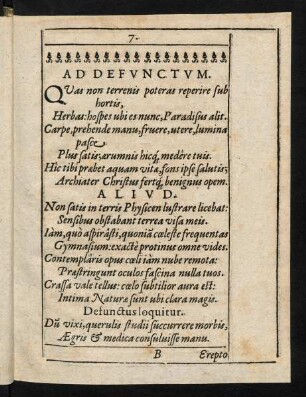 7.
AD DEFVNCTVM.
QVas non terrenis poteras reperire sub
hortis,
Herbas: hospes ubi es nunc, Paradisus alit.
Carpe, prehende manu, fruere, utere, lumina
pasce
Plus satis, ærumnis hicq́; medêre tuis.
Hic tibi præbet aquam vitæ, fons ipse salutis;
Archiater Christus fertq́; benignus opem.
ALIVD.
Non satis in terris Physicen lustrare licebat:
Sensibus obstabant terrea visa meis.
Iàm, quò aspirâsti, quoniã cœleste frequentas
Gymnasium: exactè protinus omne vides.
Contemplâris opus cœli iàm nube remota:
Præstringunt oculos fascina nulla tuos.
Crassa vale tellus: cœlo subtilior aura est:
Intima Naturæ sunt ubi clara magis.
Defunctus loquitur.
Dũ vixi, querulis studii succurrere morbis,
Ægris & medica consuluisse manu.
B
Erepto